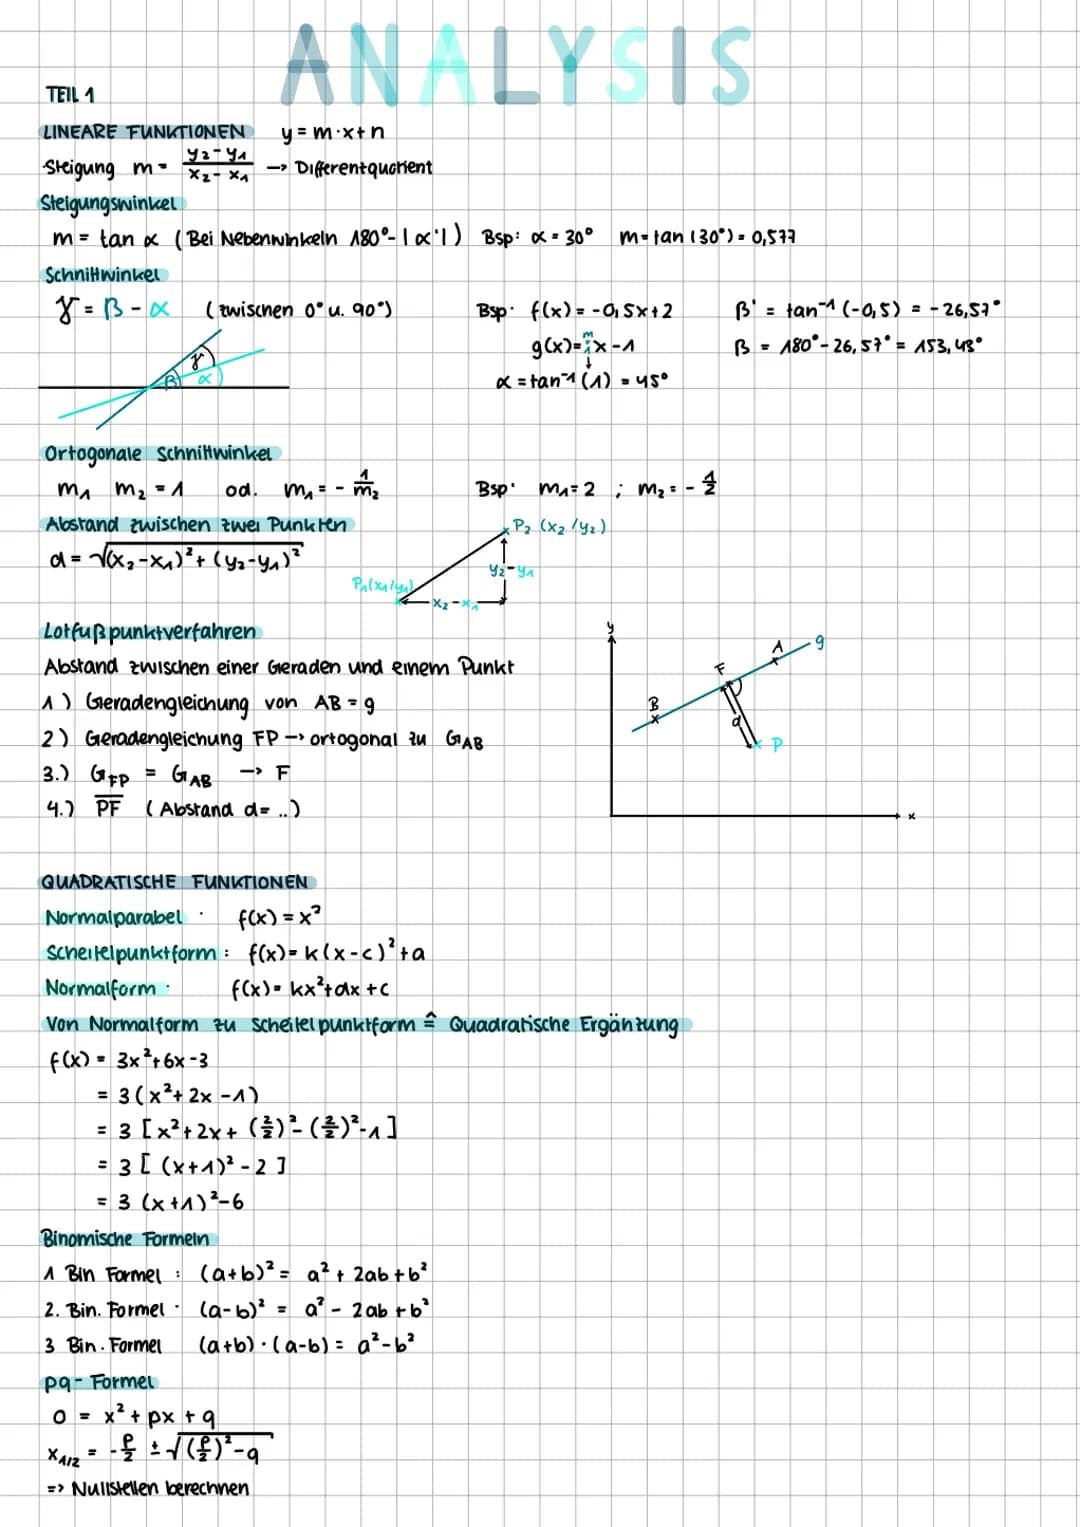 ANALYSIS
TEIL 1
LINEARE FUNKTIONEN y = m·x+n
Steigung m = (y₂-y₁)/(x₂-x₁) → Differentquotient
Steigungswinkel
m = tan α (Bei Nebenwinkeln 180°-|α'|) Bsp: α = 30° m = tan (30°) = 0,577
Schnittwinkel
γ = β - α (zwischen 0° u. 90°) Bsp: f(x) = -0,5x+2 β' = tan⁻¹ (-0,5) = -26,57°
g(x) = x -1 β = 180° - 26,57° = 153,43°
m
↓
α = tan⁻¹ (1) = 45°
γ
β α
Ortogonale Schnittwinkel
m₁ m₂ = 1 od. m₁ = - 1/m₂ Bsp: m₁ = 2 ; m₂ = - 1/2
Abstand zwischen zwei Punkten
d = √(x₂-x₁)² + (y₂-y₁)²
P₂ (x₂/y₂)
y₂-y₁
P₁(x₁/y₁)
x₂-x₁
Lotfußpunktverfahren
Abstand zwischen einer Geraden und einem Punkt
1) Geradengleichung von AB = g
2) Geradengleichung FP → ortogonal zu G_AB
3.) G_FP = G_AB → F
4.) PF (Abstand d = ..)
y
A g
F
B
d
P
x
QUADRATISCHE FUNKTIONEN
Normalparabel : f(x) = x²
Scheitelpunktform : f(x) = k(x-c)²+a
Normalform : f(x) = kx²+dx+c
Von Normalform zu Scheitelpunktform ≙ Quadratische Ergänzung
f(x) = 3x²+6x-3
= 3(x²+2x-1)
= 3 [x²+2x+ (2/2)² - (2/2)² -1]
= 3 [ (x+1)² -2 ]
= 3 (x+1)²-6
Binomische Formeln
1 Bin Formel : (a+b)² = a² + 2ab + b²
2. Bin. Formel : (a-b)² = a² - 2ab + b²
3 Bin. Formel (a+b)·(a-b) = a²-b²
pq- Formel
0 = x² + px + q
x₁/₂ = -p/2 ± √(p/2)²-q
=> Nullstellen berechnen